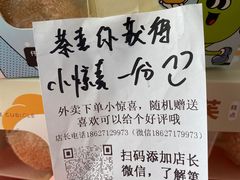 恭喜你获得
小惊喜一份
外卖下单小惊喜，随机赠送
喜欢可以给个好评哦
店长电话18627129973（微信18627179973）
扫码添加店长
微信，了解第